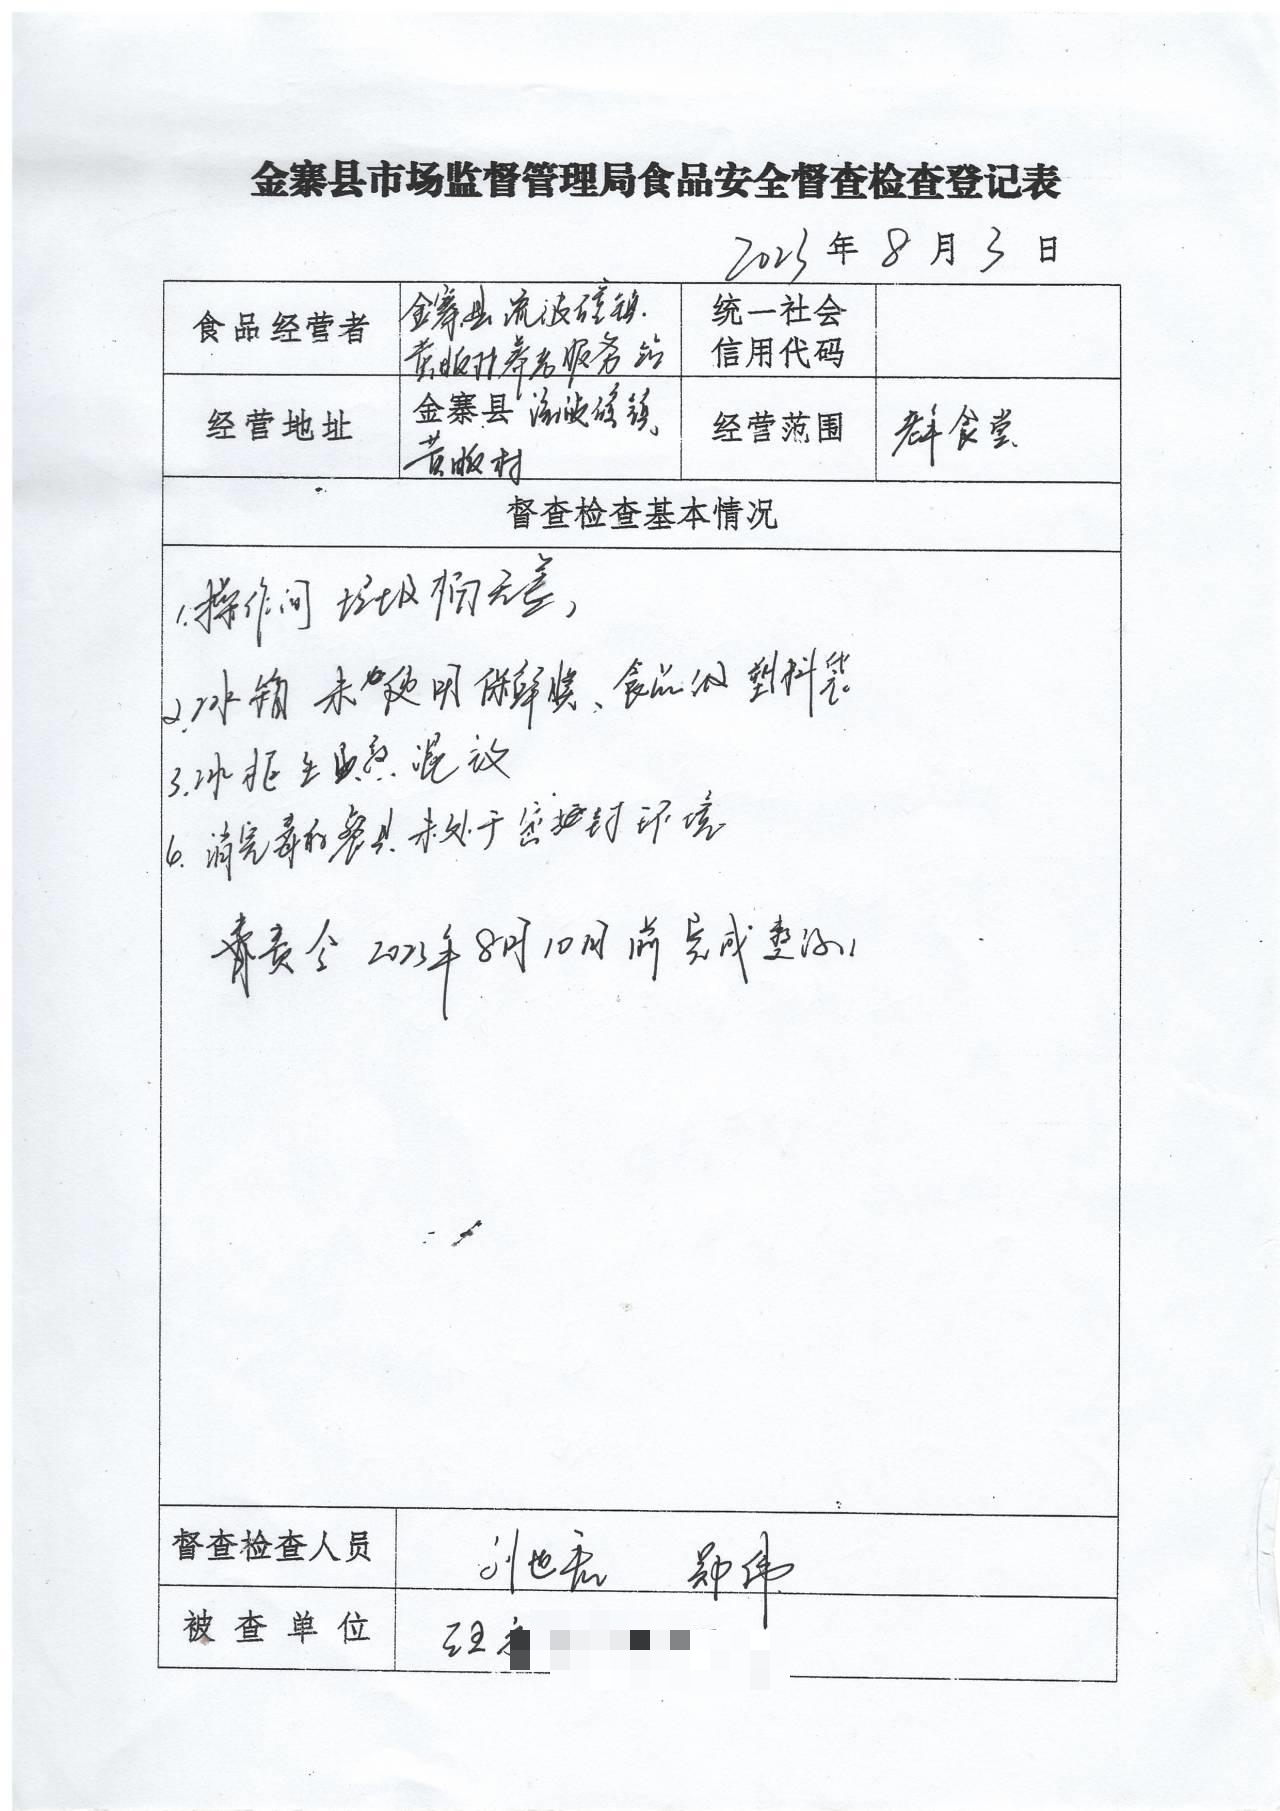 金寨县市场监督管理局食品安全督查检查登记表
2023年8月3日
食品经营者
金寨县流波䃥镇
黄畈村养老服务站
统一社会
信用代码
经营地址
金寨县流波䃥镇
黄畈村
经营范围
食堂
督查检查基本情况
1.操作间垃圾桶无盖,
2.冰箱未使用保鲜膜、食品级塑料袋。
3.冰柜生熟混放
6.消完毒的餐具未处于密封环境
责令2023年8月10日前完成整改!
督查检查人员
刘 郑伟
被查单位
汪